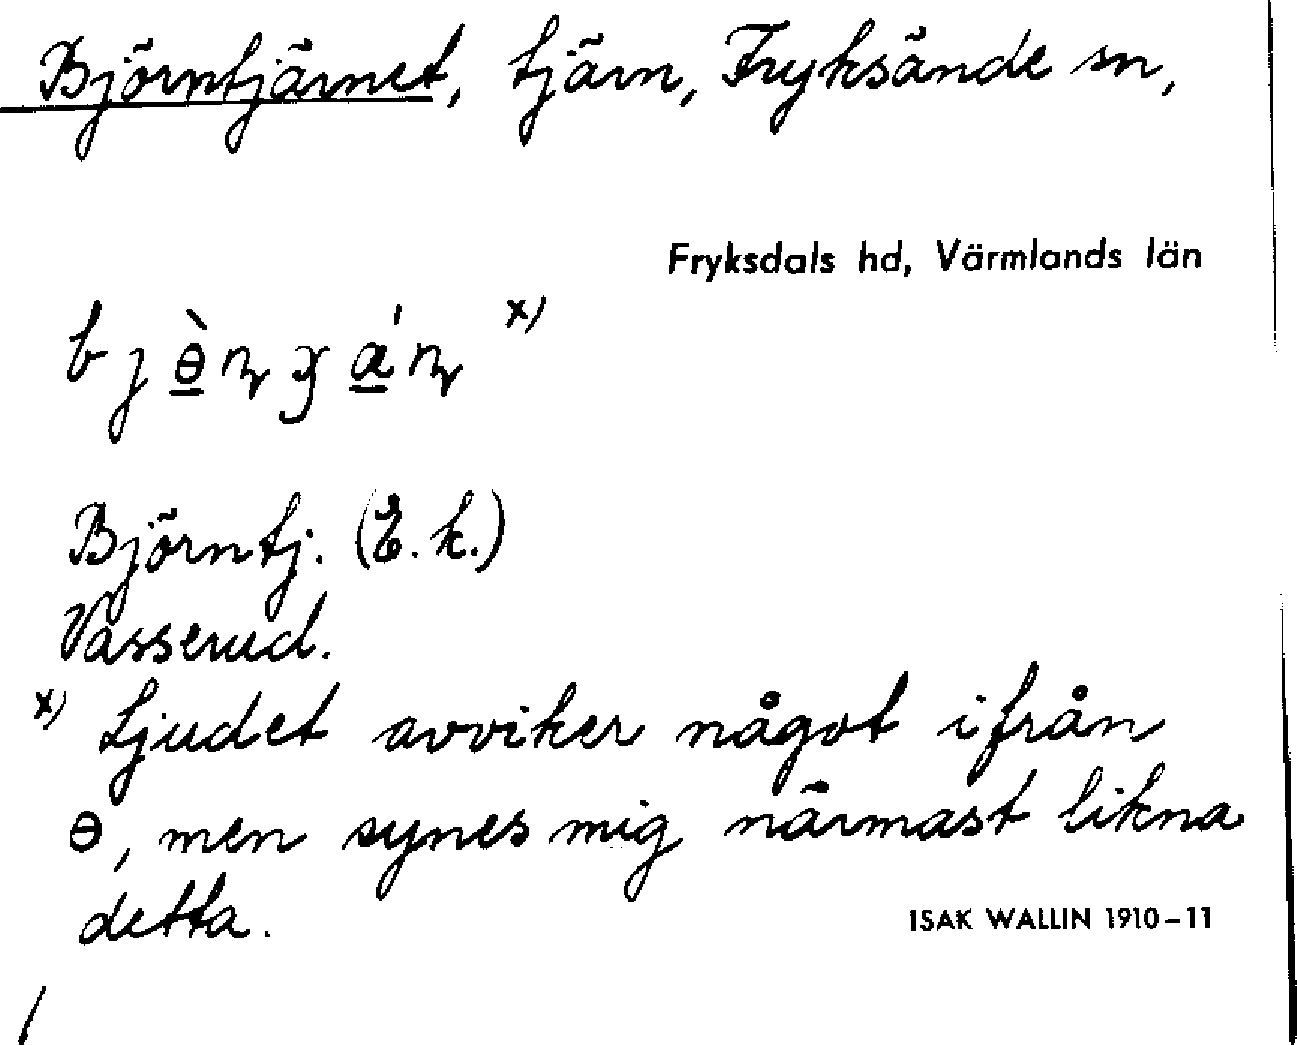 Björntjärnet, tjärn, Fryksände sn,
Fryksdals hd, Värmlands län
Björntj. (E. k.)
Vasserud.
x) Ljudet avviker något ifrån
ɵ, men synes mig närmast likna
detta.
ISAK WALLIN 1910-11